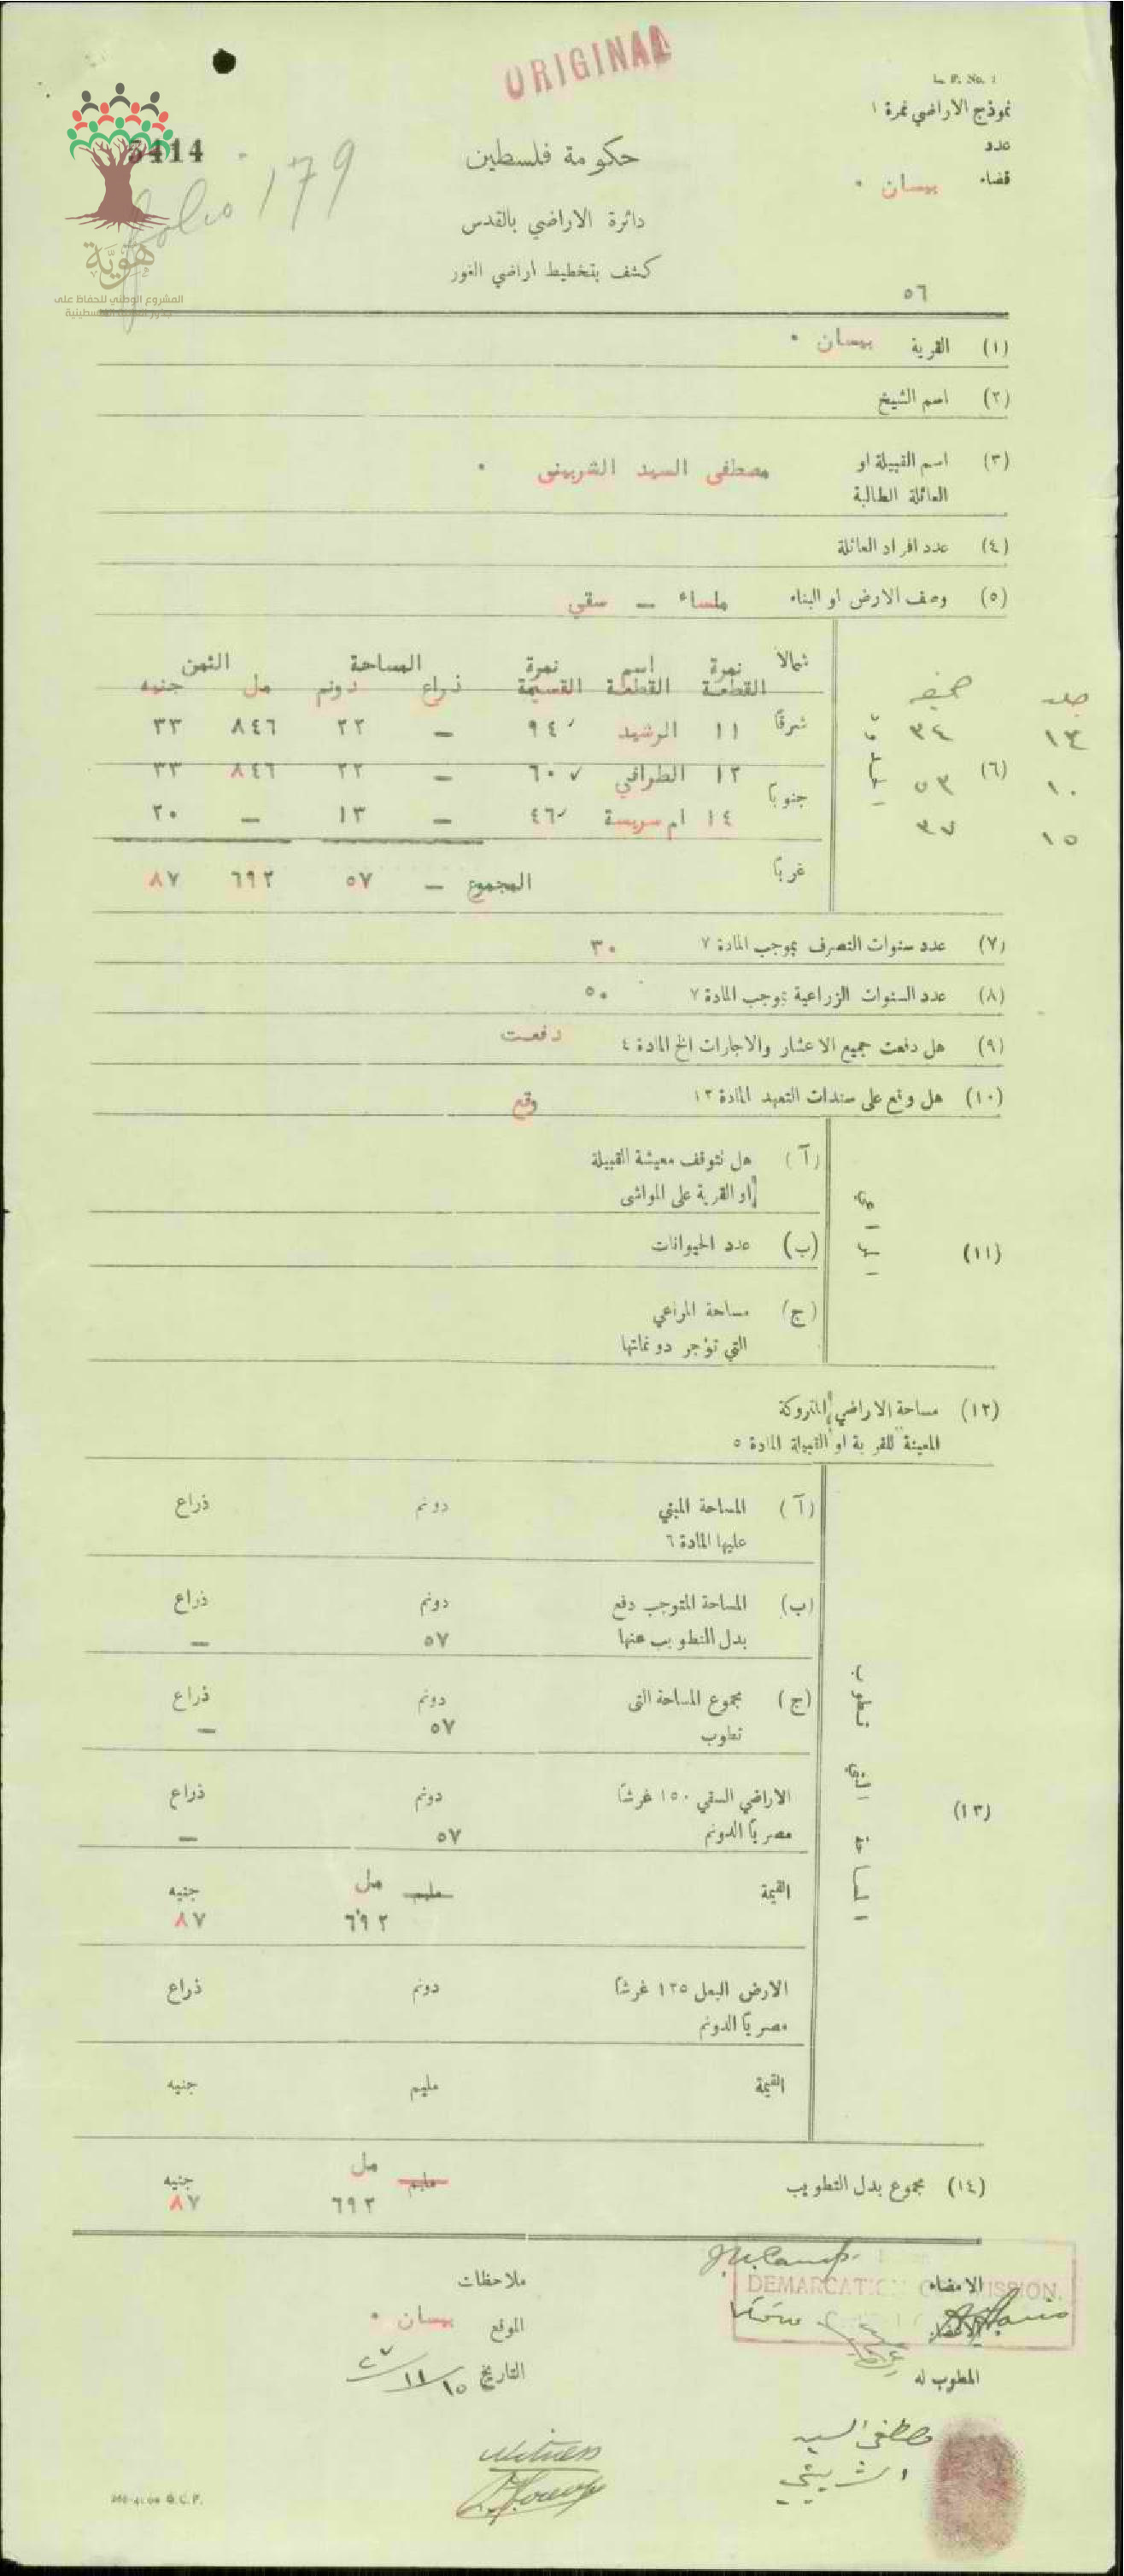 ORIGINAL
L. P. No. 1
نموذج الاراضي نمرة ١
عدد
قضاء بيسان •
5414
folio 179
حكومة فلسطين
دائرة الاراضي بالقدس
كشف بتخطيط اراضي الغور
٥٦
هُويَّة
المشروع الوطني للحفاظ على
(١) القرية بيسان •
(٢) اسم الشيخ
(٣) اسم القبيلة او مصطفى السيد الشربينى •
العائلة الطالبة
(٤) عدد افراد العائلة
(٥) وصف الارض او البناء ملساء — سقي
شمالاً نمرة اسم نمرة المساحة الثمن
القطعة القطعة القسيمة ذراع دونم مل جنيه
شرقاً ١١ الرشيد ٩٤ — ٢٢ ٨٤٦ ٣٣
١٢ الطرافي ٦٠ — ٢٢ ٨٤٦ ٣٣
جنوباً
١٤ ام سريسة ٤٦ — ١٣ — ٢٠
غرباً
المجموع — ٥٧ ٦٩٢ ٨٧
(٦)
جلد صحيفه
١٣ ٣٤
١٠ ٥٣
١٥ ٣٧
(٧) عدد سنوات التصرف بموجب المادة ٧ ٣٠
(٨) عدد السنوات الزراعية بموجب المادة ٧ ٥٠
(٩) هل دفعت جميع الاعشار والاجارات الخ المادة ٤ دفعت
(١٠) هل وقع على سندات التعهد المادة ١٢ وقع
(١١)
(آ) هل تتوقف معيشة القبيلة
او القرية على المواشى
(ب) عدد الحيوانات
(ج) مساحة المراعي
التي تؤجر دونماتها
(١٢) مساحة الاراضي المتروكة
المعينة للقرية او القبيلة المادة ٥
(١٣) المساحة التي تطوب
(آ) المساحة المبني دونم ذراع
عليها المادة ٦
(ب) المساحة المتوجب دفع دونم ذراع
بدل التطويب عنها ٥٧ —
(ج) مجموع المساحة التى دونم ذراع
تطوب ٥٧ —
الاراضي السقي ١٥٠ غرشاً دونم ذراع
مصرياً الدونم ٥٧ —
القيمة مليم مل جنيه
٦٩٢ ٨٧
الارض البعل ١٢٥ غرشاً دونم ذراع
مصرياً الدونم
القيمة مليم جنيه
(١٤) مجموع بدل التطويب مليم مل جنيه
٦٩٢ ٨٧
الامضاء
DEMARCATION COMMISSION.
ملاحظات
الموقع بيسان •
التاريخ ١٥/١١/٢٧
المطوب له
مصطفى السيد
الشربيني
Witness